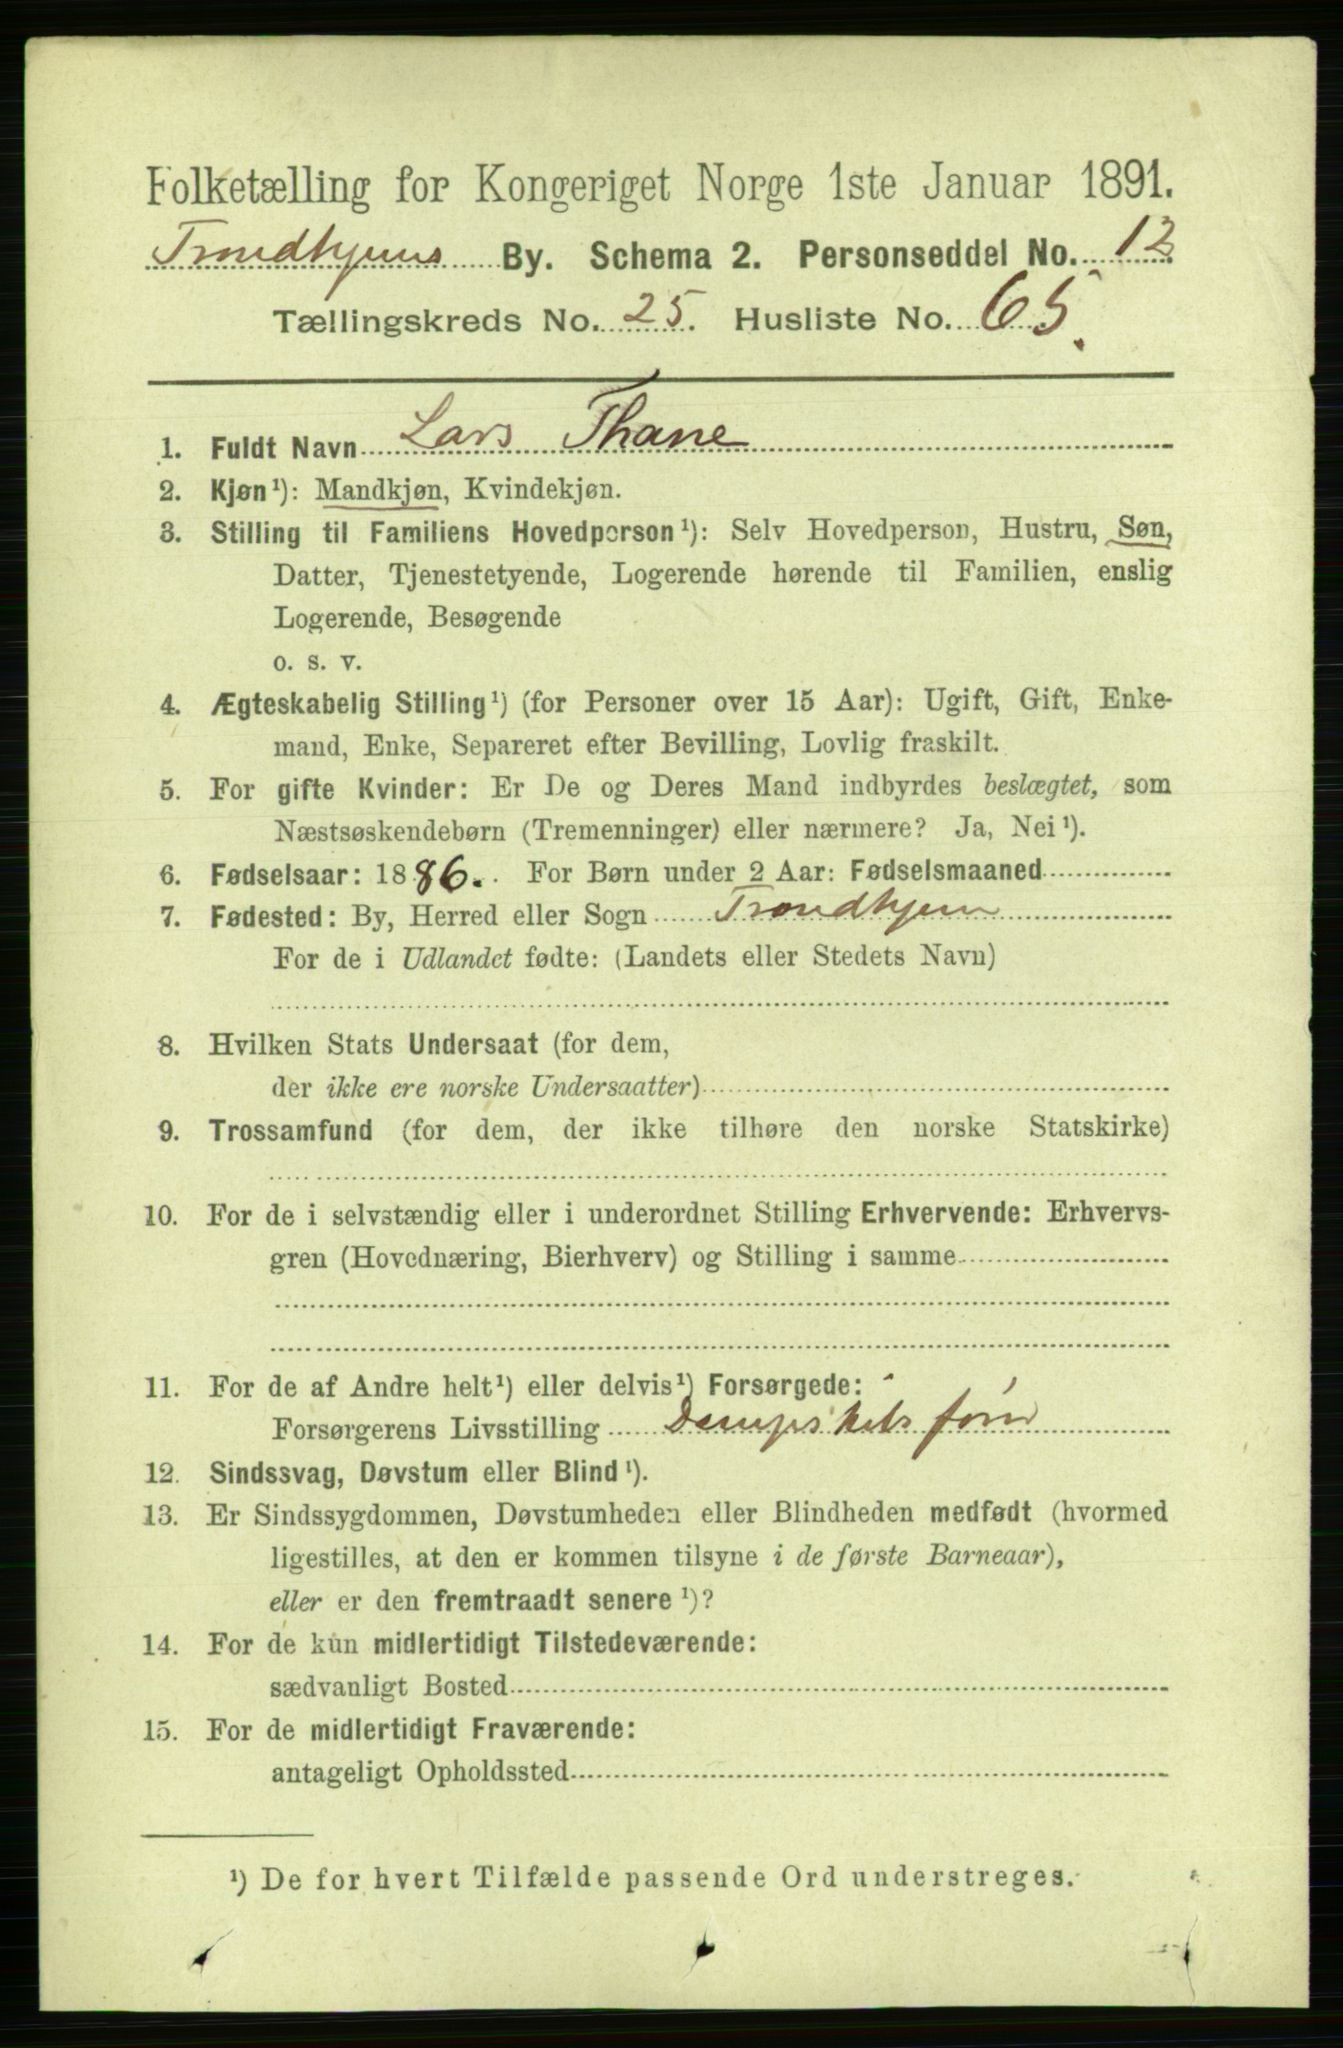 Folketælling for Kongeriget Norge 1ste Januar 1891.
Trondhjems By. Schema 2. Personseddel No. 12
Tællingskreds No. 25. Husliste No. 65.
1. Fuldt Navn Lars Thane
2. Kjøn¹): Mandkjøn, Kvindekjøn.
3. Stilling til Familiens Hovedperson¹): Selv Hovedperson, Hustru, Søn,
Datter, Tjenestetyende, Logerende hørende til Familien, enslig
Logerende, Besøgende
o. s. v.
4. Ægteskabelig Stilling¹) (for Personer over 15 Aar): Ugift, Gift, Enke-
mand, Enke, Separeret efter Bevilling, Lovlig fraskilt.
5. For gifte Kvinder: Er De og Deres Mand indbyrdes beslægtet, som
Næstsøskendebørn (Tremenninger) eller nærmere? Ja, Nei¹).
6. Fødselsaar: 1886. For Børn under 2 Aar: Fødselsmaaned
7. Fødested: By, Herred eller Sogn Trondhjem
For de i Udlandet fødte: (Landets eller Stedets Navn)
8. Hvilken Stats Undersaat (for dem,
der ikke ere norske Undersaatter)
9. Trossamfund (for dem, der ikke tilhøre den norske Statskirke)
10. For de i selvstændig eller i underordnet Stilling Erhvervende: Erhvervs-
gren (Hovednæring, Bierhverv) og Stilling i samme
11. For de af Andre helt¹) eller delvis¹) Forsørgede:
Forsørgerens Livsstilling Dampskibsfører
12. Sindssvag, Døvstum eller Blind¹).
13. Er Sindssygdommen, Døvstumheden eller Blindheden medfødt (hvormed
ligestilles, at den er kommen tilsyne i de første Barneaar),
eller er den fremtraadt senere¹)?
14. For de kun midlertidigt Tilstedeværende:
sædvanligt Bosted
15. For de midlertidigt Fraværende:
antageligt Opholdssted
¹) De for hvert Tilfælde passende Ord understreges.